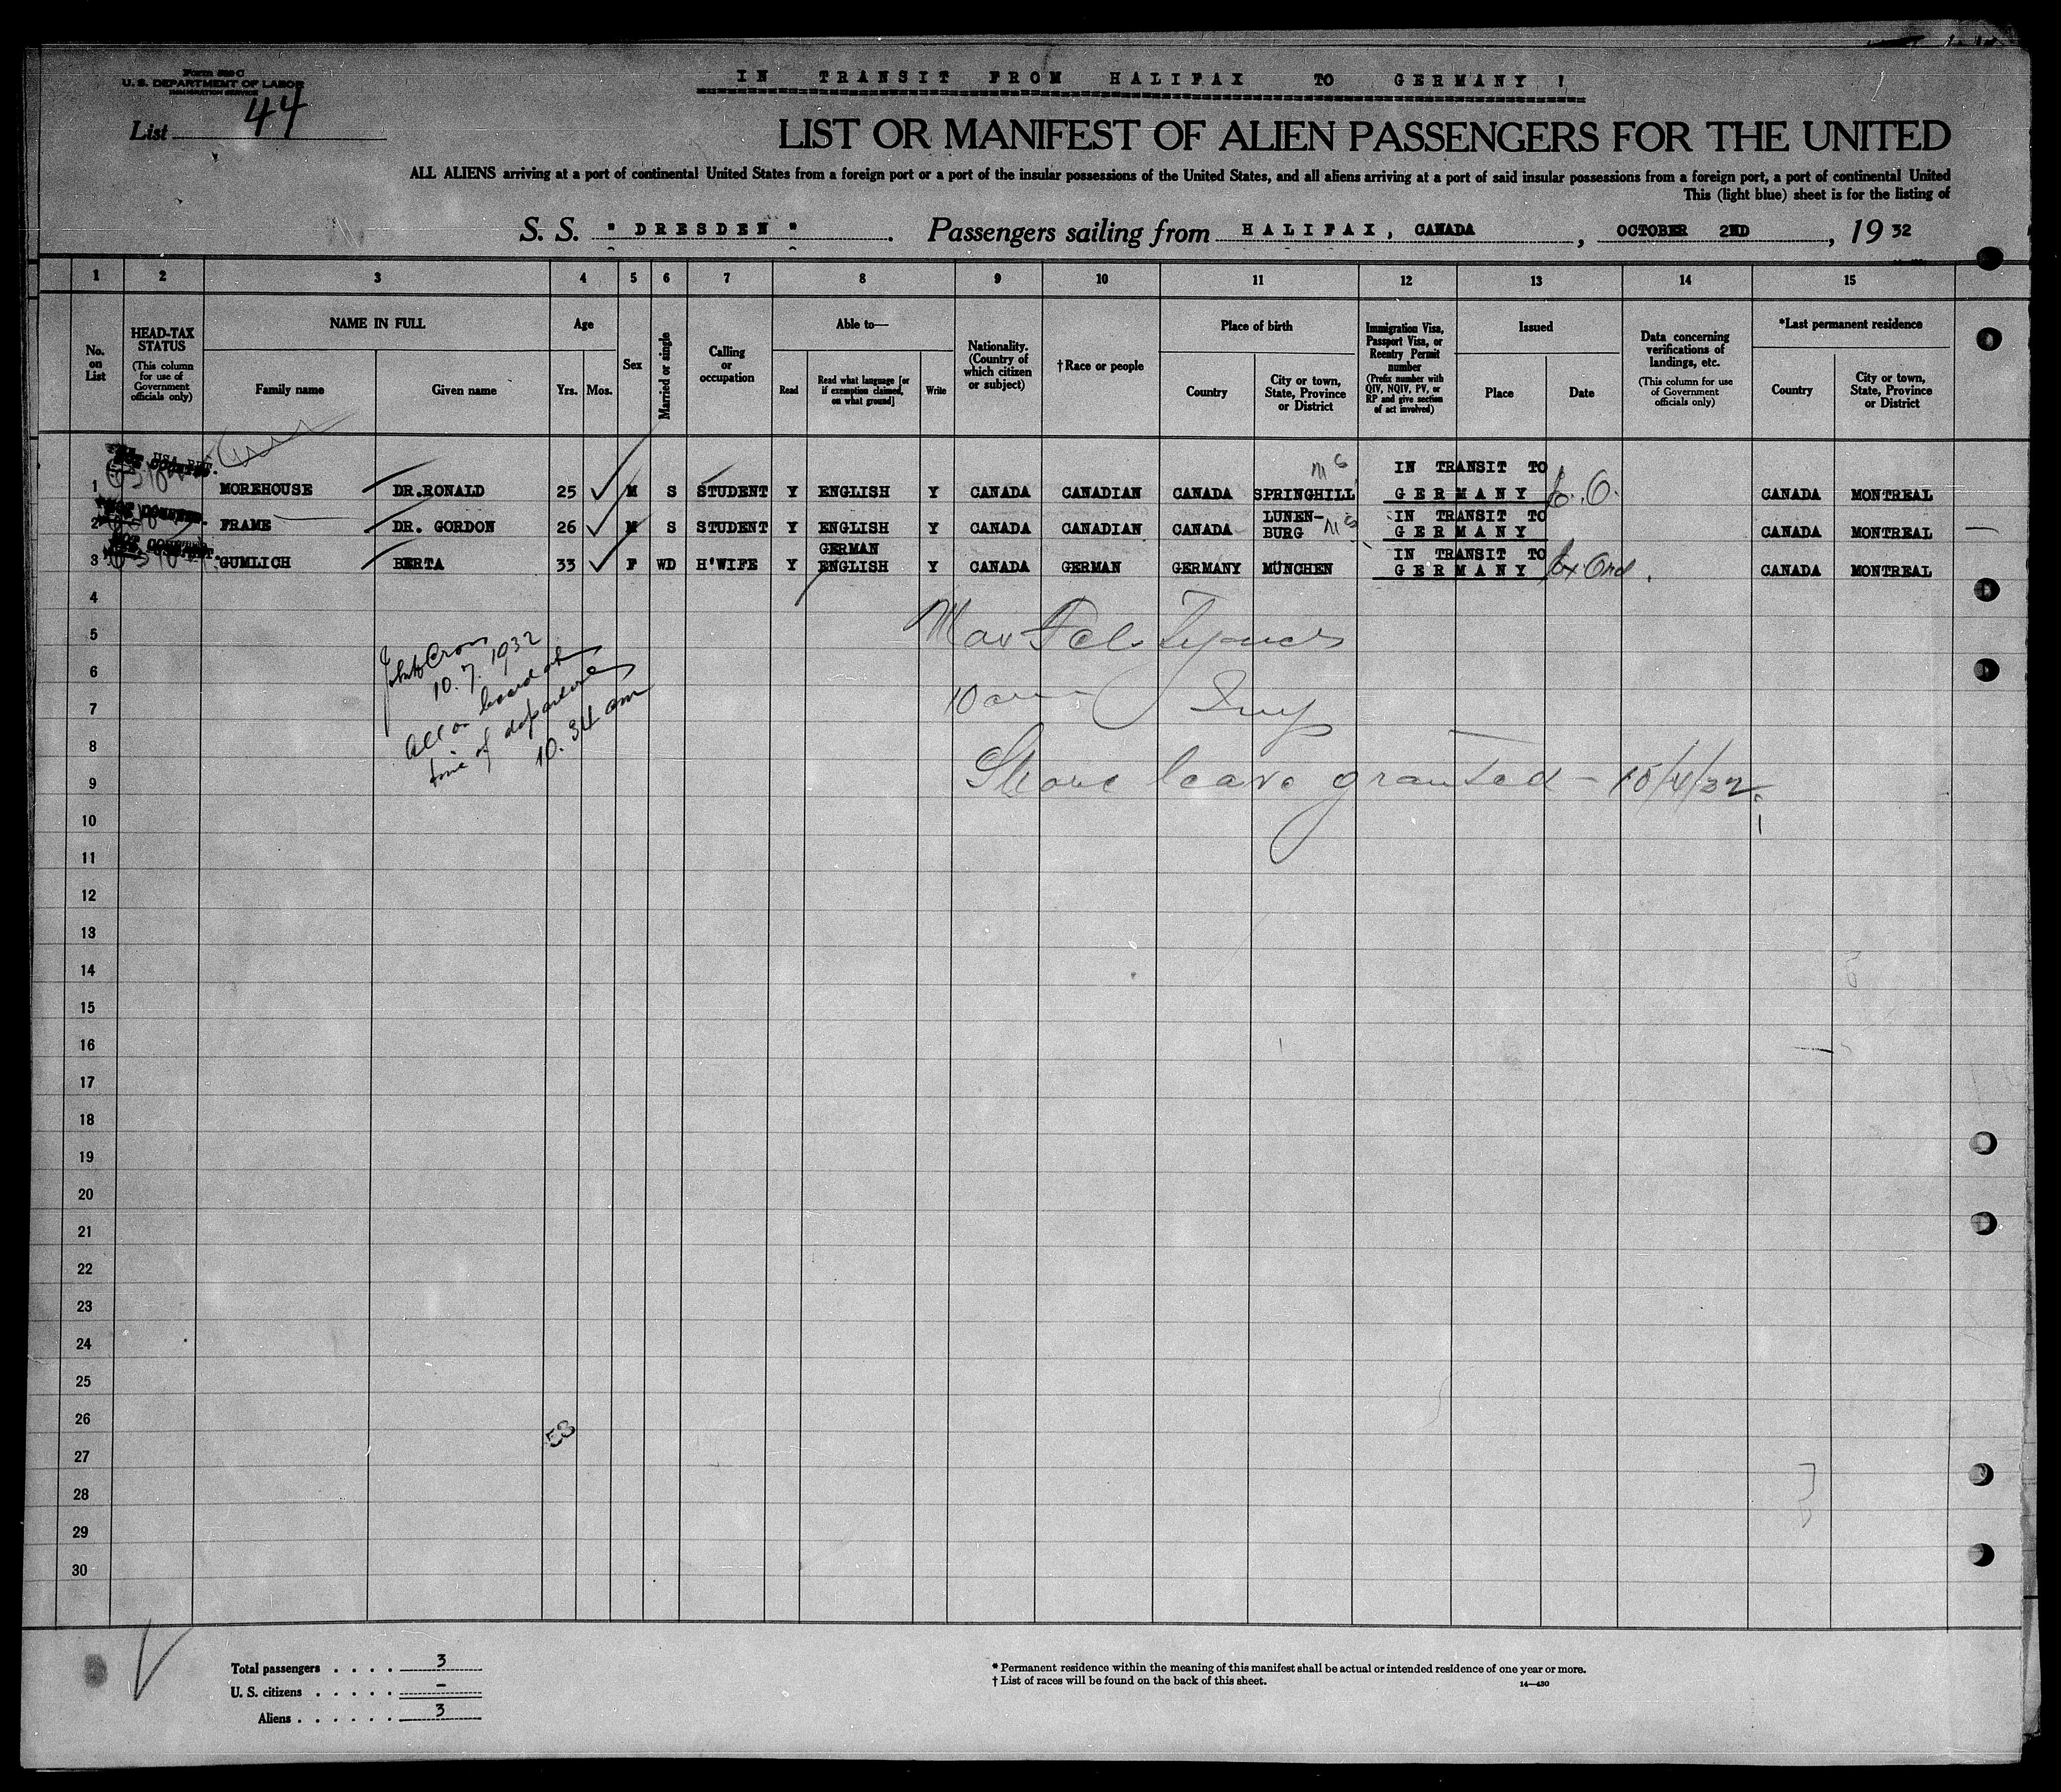 IN TRANSIT FROM HALIFAX TO GERMANY !
Form 500 C
U. S. DEPARTMENT OF LABOR
IMMIGRATION SERVICE
List 44
LIST OR MANIFEST OF ALIEN PASSENGERS FOR THE UNITED
ALL ALIENS arriving at a port of continental United States from a foreign port or a port of the insular possessions of the United States, and all aliens arriving at a port of said insular possessions from a foreign port, a port of continental United
This (light blue) sheet is for the listing of
S. S. "DRESDEN". Passengers sailing from HALIFAX, CANADA, OCTOBER 2ND, 19 32
1 2 3 4 5 6 7 8 9 10 11 12 13 14 15
No. on List
HEAD-TAX STATUS
(This column for use of Government officials only)
NAME IN FULL
Family name Given name
Age
Yrs. Mos.
Sex
Married or single
Calling or occupation
Able to—
Read Read what language [or if exemption claimed, on what ground] Write
Nationality. (Country of which citizen or subject)
†Race or people
Place of birth
Country City or town, State, Province or District
Immigration Visa, Passport Visa, or Reentry Permit number
(Prefix number with QIV, NQIV, PV, or RP and give section of act involved)
Issued
Place Date
Data concerning verifications of landings, etc.
(This column for use of Government officials only)
*Last permanent residence
Country City or town, State, Province or District
IN TRANSIT TO
1 MOREHOUSE DR.RONALD 25 M S STUDENT Y ENGLISH Y CANADA CANADIAN CANADA SPRINGHILL GERMANY CANADA MONTREAL
LUNEN- IN TRANSIT TO
2 FRAME DR. GORDON 26 M S STUDENT Y ENGLISH Y CANADA CANADIAN CANADA BURG GERMANY CANADA MONTREAL
GERMAN IN TRANSIT TO
3 GUMLICH BERTA 33 F WD H'WIFE Y ENGLISH Y CANADA GERMAN GERMANY MÜNCHEN GERMANY CANADA MONTREAL
4
5
6
7
8
9
10
11
12
13
14
15
16
17
18
19
20
21
22
23
24
25
26
27
28
29
30
10. 7. 1932
All on board at
time of departure
10. 34 am
Shore leave granted - 10/4/32
Total passengers . . . . 3
U. S. citizens . . . . . –
Aliens . . . . . . 3
* Permanent residence within the meaning of this manifest shall be actual or intended residence of one year or more.
† List of races will be found on the back of this sheet.
14—430